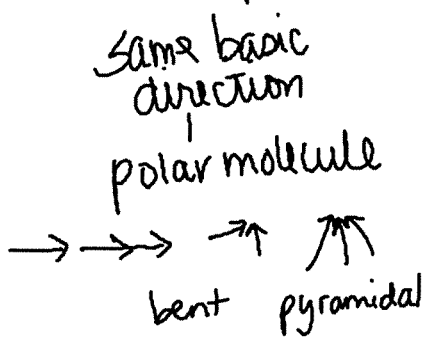 same basic
direction
polar molecule
bent pyramidal